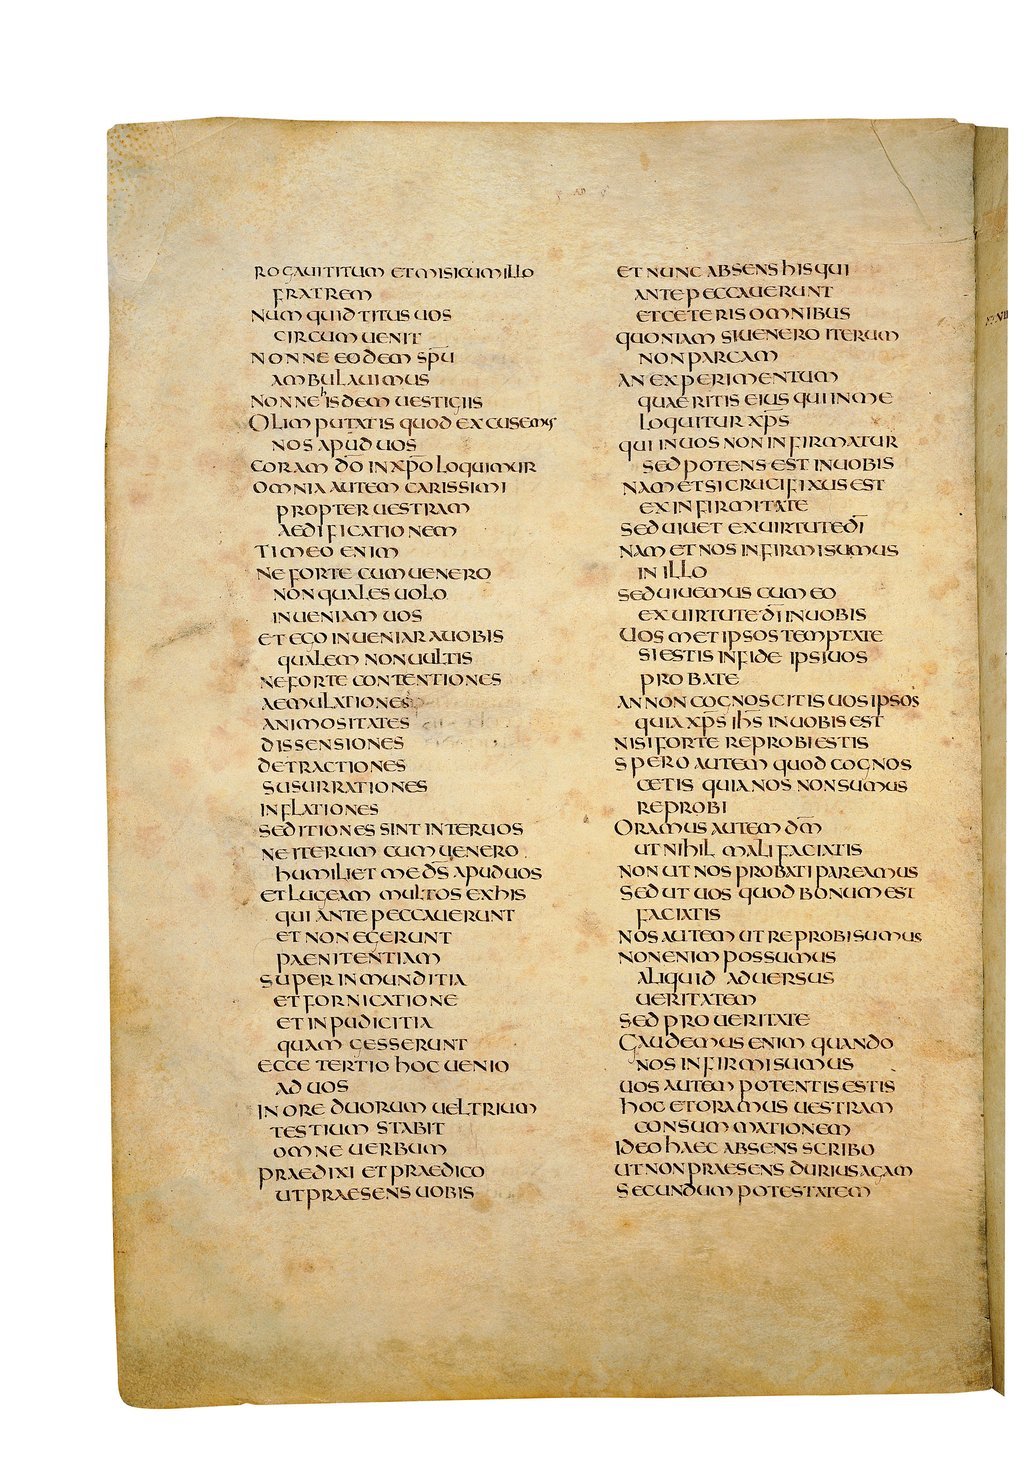 ROGAUITITUM ET MISI CUM ILLO
FRATREM
NUM QUID TITUS UOS
CIRCUM UENIT
NONNE EODEM SPŪ
AMBULAUIMUS
NONNE hISDEM UESTIGIIS
OLIM PUTATIS QUOD EXCUSEMUS
NOS APUD UOS
CORAM D̄O IN XP̄O LOQUIMUR
OMNIA AUTEM CARISSIMI
PROPTER UESTRAM
AEDIFICATIONEM
TIMEO ENIM
NE FORTE CUM UENERO
NON QUALES UOLO
INUENIAM UOS
ET EGO INUENIAR A UOBIS
QUALEM NON UULTIS
NE FORTE CONTENTIONES
AEMULATIONES
ANIMOSITATES
DISSENSIONES
DETRACTIONES
SUSURRATIONES
INFLATIONES
SEDITIONES SINT INTER UOS
NE ITERUM CUM UENERO
hUMILIET ME D̄S APUD UOS
ET LUGEAM MULTOS EX hIS
QUI ANTE PECCAUERUNT
ET NON EGERUNT
PAENITENTIAM
SUPER INMUNDITIA
ET FORNICATIONE
ET INPUDICITIA
QUAM GESSERUNT
ECCE TERTIO hOC UENIO
AD UOS
IN ORE DUORUM UEL TRIUM
TESTIUM STABIT
OMNE UERBUM
PRAEDIXI ET PRAEDICO
UT PRAESENS UOBIS
ET NUNC ABSENS hIS QUI
ANTE PECCAUERUNT
ET CETERIS OMNIBUS
QUONIAM SI UENERO ITERUM
NON PARCAM
AN EXPERIMENTUM
QUAERITIS EIUS QUI IN ME
LOQUITUR XP̄S
QUI IN UOS NON INFIRMATUR
SED POTENS EST IN UOBIS
NAM ET SI CRUCIFIXUS EST
EX INFIRMITATE
SED UIUET EX UIRTUTE D̄I
NAM ET NOS INFIRMI SUMUS
IN ILLO
SED UIUEMUS CUM EO
EX UIRTUTE D̄I IN UOBIS
UOS MET IPSOS TEMPTATE
SI ESTIS IN FIDE IPSI UOS
PROBATE
AN NON COGNOSCITIS UOS IPSOS
QUIA XP̄S Ih̄S IN UOBIS EST
NISI FORTE REPROBI ESTIS
SPERO AUTEM QUOD COGNOS
CETIS QUIA NOS NON SUMUS
REPROBI
ORAMUS AUTEM D̄M
UT NIhIL MALI FACIATIS
NON UT NOS PROBATI PAREAMUS
SED UT UOS QUOD BONUM EST
FACIATIS
NOS AUTEM UT REPROBI SUMUS
NON ENIM POSSUMUS
ALIQUID ADUERSUS
UERITATEM
SED PRO UERITATE
GAUDEMUS ENIM QUANDO
NOS INFIRMI SUMUS
UOS AUTEM POTENTIS ESTIS
hOC ET ORAMUS UESTRAM
CONSUMMATIONEM
IDEO hAEC ABSENS SCRIBO
UT NON PRAESENS DURIUS AGAM
SECUNDUM POTESTATEM